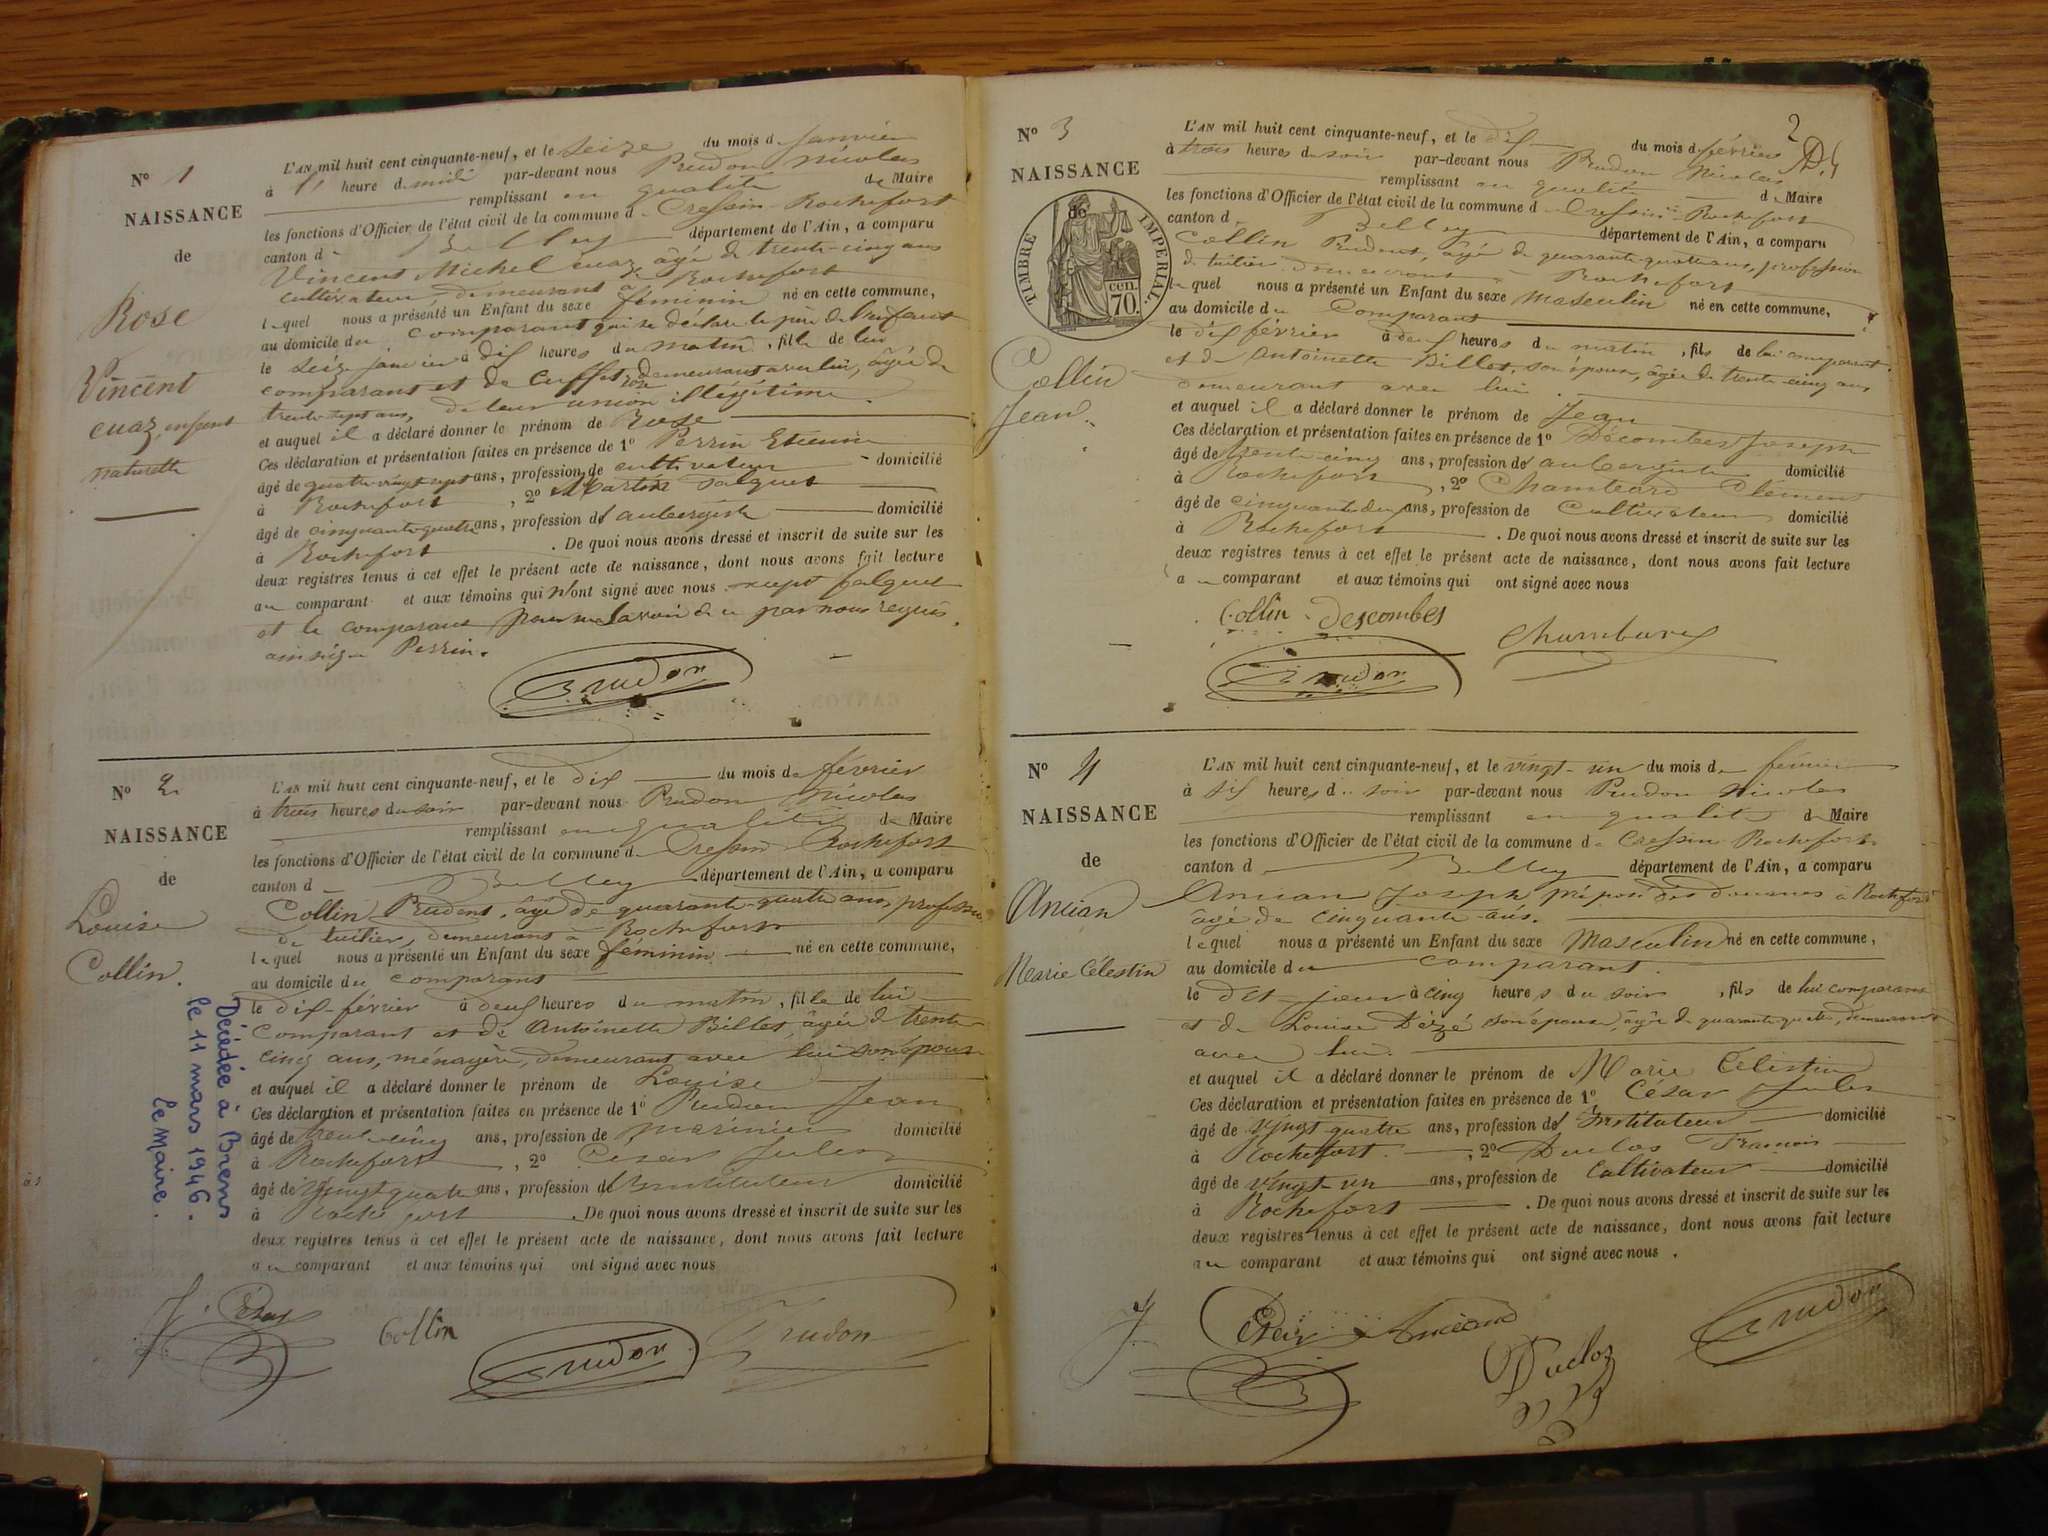 N° 1
NAISSANCE
de
Rose
Vincent
cuaz, enfant
naturelle
L'AN mil huit cent cinquante-neuf, et le seize du mois de janvier
à heure de midi par-devant nous Prudon Nicolas
remplissant en qualité de Maire
les fonctions d'Officier de l'état civil de la commune de Cressin-Rochefort
canton de Belley département de l'Ain, a comparu
Vincent Michel cuaz âgé de trente-cinq ans
cultivateur, demeurant à Rochefort
lequel nous a présenté un Enfant du sexe féminin né en cette commune,
au domicile du comparant qui se déclare le père de l'enfant
le seize janvier à dix heures du matin, fille de lui
comparant et de rose demeurant avec lui, âgée de
trente-sept ans, de leur union illégitime.
et auquel il a déclaré donner le prénom de Rose
Ces déclaration et présentation faites en présence de 1° Perrin Etienne
âgé de quatre-vingt-sept ans, profession de cultivateur domicilié
à Rochefort, 2°
âgé de cinquante-quatre ans, profession d'aubergiste domicilié
à Rochefort. De quoi nous avons dressé et inscrit de suite sur les
deux registres tenus à cet effet le présent acte de naissance, dont nous avons fait lecture
au comparant et aux témoins qui n'ont signé avec nous
et le comparant pour ne savoir de ce par nous requis,
ainsi que Perrin.
Prudon
N° 2
NAISSANCE
de
Louise
Collin.
Décédée à Brens
le 11 mars 1946.
Le Maire.
L'AN mil huit cent cinquante-neuf, et le dix du mois de février
à trois heures du soir par-devant nous Prudon Nicolas
remplissant en qualité de Maire
les fonctions d'Officier de l'état civil de la commune de Cressin-Rochefort
canton de Belley département de l'Ain, a comparu
Collin Prudent, âgé de quarante-quatre ans, profession
de tuilier, demeurant à Rochefort
lequel nous a présenté un Enfant du sexe féminin né en cette commune,
au domicile du comparant
le dix février à deux heures du matin, fille de lui
comparant et de Antoinette Billet, âgée de trente
cinq ans, ménagère, demeurant avec lui son épouse
et auquel il a déclaré donner le prénom de Louise
Ces déclaration et présentation faites en présence de 1° Prudon Jean
âgé de trente-cinq ans, profession de marinier domicilié
à Rochefort, 2° César Jules
âgé de vingt quatre ans, profession de Instituteur domicilié
à Rochefort. De quoi nous avons dressé et inscrit de suite sur les
deux registres tenus à cet effet le présent acte de naissance, dont nous avons fait lecture
au comparant et aux témoins qui ont signé avec nous
J. César Collin Prudon Prudon
2
N° 3
NAISSANCE
de
TIMBRE IMPÉRIAL.
70. cen.
Collin
Jean.
L'AN mil huit cent cinquante-neuf, et le dix du mois de février
à trois heures du soir par-devant nous Prudon Nicolas
remplissant en qualité de Maire
les fonctions d'Officier de l'état civil de la commune de Cressin-Rochefort
canton de Belley département de l'Ain, a comparu
Collin Prudent, âgé de quarante-quatre ans, profession
de tuilier demeurant à Rochefort
lequel nous a présenté un Enfant du sexe masculin né en cette commune,
au domicile du Comparant
le dix février à deux heures du matin, fils de lui comparant
et de Antoinette Billet, son épouse, âgée de trente-cinq ans
demeurant avec lui.
et auquel il a déclaré donner le prénom de Jean
Ces déclaration et présentation faites en présence de 1° Décombes Joseph
âgé de trente-cinq ans, profession d'aubergiste domicilié
à Rochefort, 2° Clément
âgé de cinquante-deux ans, profession de Cultivateur domicilié
à Rochefort. De quoi nous avons dressé et inscrit de suite sur les
deux registres tenus à cet effet le présent acte de naissance, dont nous avons fait lecture
au comparant et aux témoins qui ont signé avec nous
Collin Descombes
Prudon
N° 4
NAISSANCE
de
Ancian
Marie Célestin
L'AN mil huit cent cinquante-neuf, et le vingt-un du mois de février
à six heures du soir par-devant nous Prudon Nicolas
remplissant en qualité de Maire
les fonctions d'Officier de l'état civil de la commune de Cressin Rochefort
canton de Belley département de l'Ain, a comparu
Ancian Joseph préposé des douanes à Rochefort
âgé de cinquante ans.
lequel nous a présenté un Enfant du sexe Masculin né en cette commune,
au domicile du comparant.
le dit jour à cinq heures du soir, fils de lui comparant
et de Louise son épouse, âgée de quarante quatre, demeurant
avec lui.
et auquel il a déclaré donner le prénom de Marie Célestin
Ces déclaration et présentation faites en présence de 1° César Jules
âgé de vingt quatre ans, profession d'Instituteur domicilié
à Rochefort, 2° Duclos François
âgé de vingt-un ans, profession de Cultivateur domicilié
à Rochefort. De quoi nous avons dressé et inscrit de suite sur les
deux registres tenus à cet effet le présent acte de naissance, dont nous avons fait lecture
au comparant et aux témoins qui ont signé avec nous.
J. César Ancian Duclos Prudon